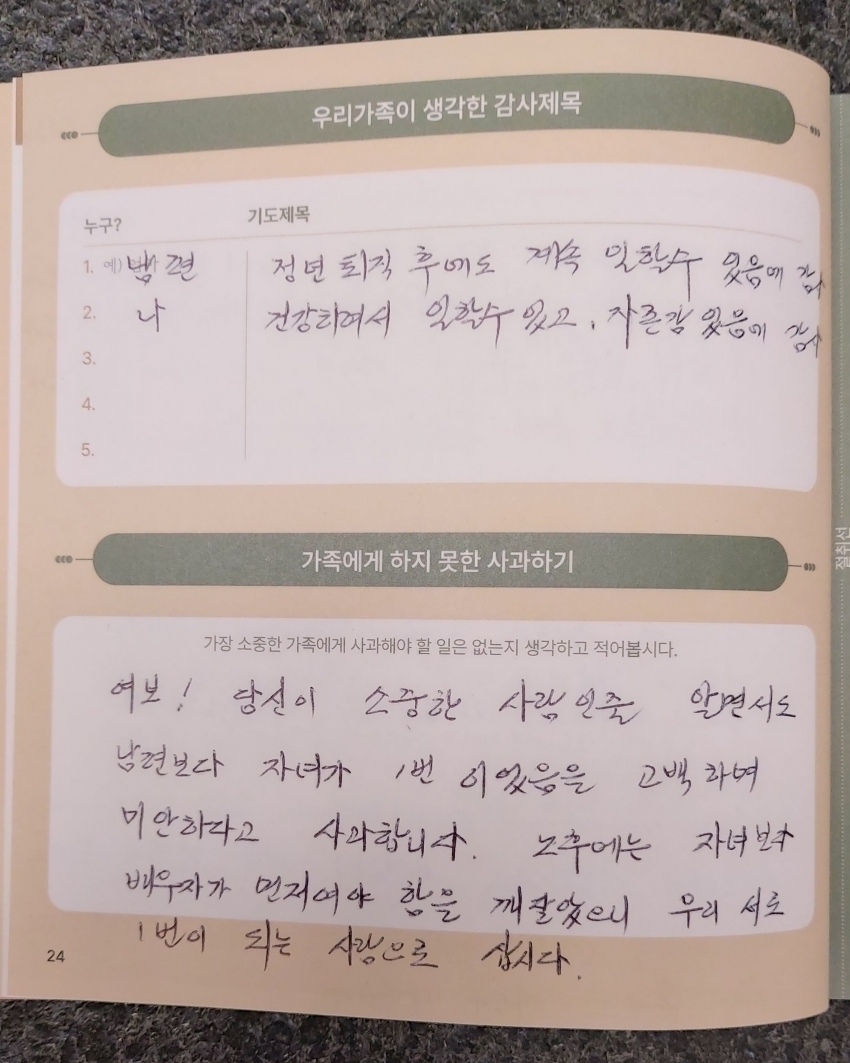 우리가족이 생각한 감사제목
누구? 기도제목
1. 예) 남편 정년 퇴직 후에도 계속 일할수 있음에 감사
2. 나 건강하여서 일할수 있고, 자존감 있음에 감사
3.
4.
5.
가족에게 하지 못한 사과하기
절취선
가장 소중한 가족에게 사과해야 할 일은 없는지 생각하고 적어봅시다.
여보! 당신이 소중한 사람인줄 알면서도
남편보다 자녀가 1번 이었음을 고백하며
미안하다고 사과합니다. 노후에는 자녀보다
배우자가 먼저여야 함을 깨달았으니 우리 서로
1번이 되는 사랑으로 삽시다.
24